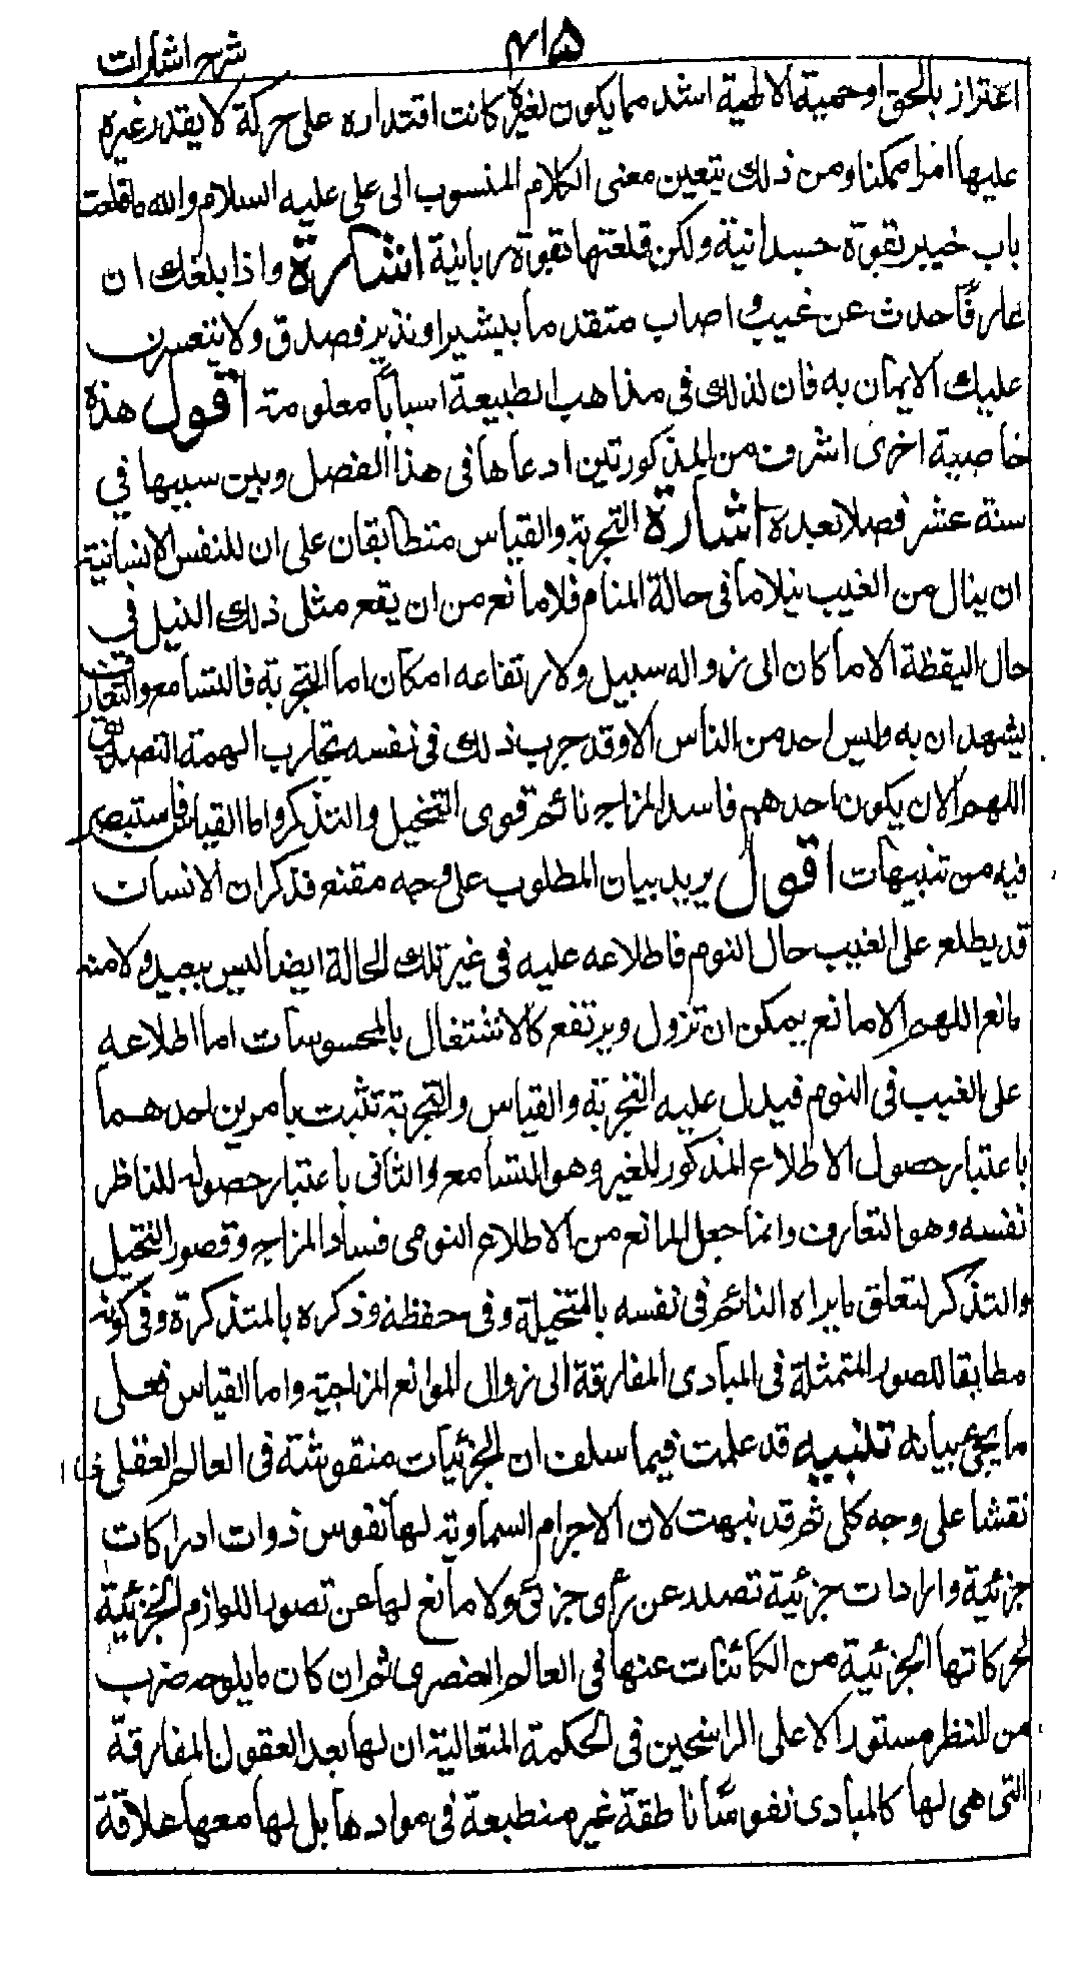 شرح اشارات
۴۱۵
اعتزاز بالحق او حمية الالهية اشد مما يكون لغيره كانت اقتداره على حركة لا يقدر غيره
عليها امرا ممكنا ومن ذلك يتعين معنى الكلام المنسوب الى على عليه السلام والله ما قلعت
باب خيبر بقوة جسدانية ولكن قلعتها بقوة ربانية اشارة واذا بلغك ان
عارفًا حدث عن غيب و اصاب متقدما ببشير او نذير فصدق ولا يتعسرن
عليك الايمان به فان لذلك فى مذاهب الطبيعة اسبابًا معلومة اقول هذه
خاصية اخرى اشرف من المذكورتين ادعاها فى هذا الفصل وبين سببها في
ستة عشر فصلا بعده اشارة التجربة والقياس متطابقان على ان للنفس الانسانية
ان ينال من الغيب نيلا ما فى حالة المنام فلا مانع من ان يقع مثل ذلك النيل فى
حال اليقظة الا ما كان الى زواله سبيل ولا رتفاعه امكان اما التجربة فالتسامع والتعارف
يشهدان به وليس احد من الناس الا وقد جرب ذلك فى نفسه تجارب الهمته التصديق
اللهم الا ان يكون احدهم فاسد المزاج نائم قوى التخيل والتذكر واما القياس فاستبصر
فيه من تنبيهات اقول يريد بيان المطلوب على وجه مقنع فذكر ان الانسان
قد يطلع على الغيب حال النوم فاطلاعه عليه فى غير تلك الحالة ايضا ليس ببعيد ولا منه
مانع اللهم الا مانع يمكن ان تزول ويرتفع كالاشتغال بالمحسوسات اما اطلاعه
على الغيب فى النوم فيدل عليه التجربة والقياس والتجربة تثبت بامرين احدهما
باعتبار حصول الاطلاع المذكور للغير وهو التسامع والثانى باعتبار حصوله للناظر
نفسه وهو التعارف وانما جعل المانع من الاطلاع النومى فساد المزاج وقصور التخيل
والتذكر لتعلق ما يراه النائم فى نفسه بالمتخيلة وفى حفظه وذكره بالمتذكرة وفى كونه
مطابقا للصور المتمثلة فى المبادى المفارقة الى زوال الموانع المزاجية واما القياس فعلى
ما يجئ بيانه تنبيه قد علمت فيما سلف ان الجزئيات منقوشة فى العالم العقلى
نقشا على وجه كلى ثم قد نبهت لان الاجرام السماوية لها نفوس ذوات ادراكات
جزئية وارادات جزئية تصدر عن رأى جزئى ولا مانع لها عن تصور اللوازم الجزئية
لحركاتها الجزئية من الكائنات عنها فى العالم العنصرى ثم ان كان ما يلوحه ضرب
من النظر مستورا الا على الراسخين فى الحكمة المتعالية ان لها بعد العقول المفارقة
التى هى لها كالمبادى نفوسًا ناطقة غير منطبعة فى موادها بل لها معها علاقة